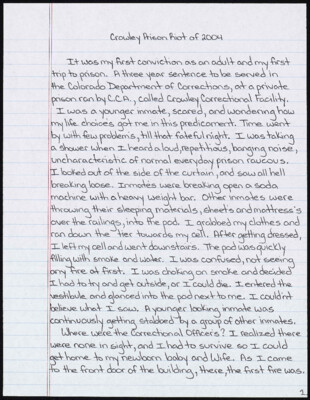 Crowley Prison Riot of 2004
It was my first conviction as an adult and my first
trip to prison. A three year sentence to be served in
the Colorado Department of Corrections, at a private
prison ran by C.C.A., called Crowley Correctional Facility.
I was a younger inmate, scared, and wondering how
my life choices got me in this predicament. Time went
by with few problems, till that fateful night. I was taking
a shower when I heard a loud, repetitious, banging noise,
uncharacteristic of normal everyday prison raucous.
I looked out of the side of the curtain, and saw all hell
breaking loose. Inmates were breaking open a soda
machine with a heavy weight bar. Other inmates were
throwing their sleeping materials, sheets and mattress's
over the railings, into the pod. I grabbed my clothes and
ran down the tier towards my cell. After getting dressed,
I left my cell and went downstairs. The pod was quickly
filling with smoke and water. I was confused, not seeing
any fire at first. I was choking on smoke and decided
I had to try and get outside, or I could die. I entered the
vestibule and glanced into the pod next to me. I couldn't
believe what I saw. A younger looking inmate was
continuously getting stabbed by a group of other inmates.
Where were the Correctional Officers? I realized there
were none in sight, and I had to survive so I could
get home to my newborn baby and wife. As I came
to the front door of the building, there, the first fire was.
1